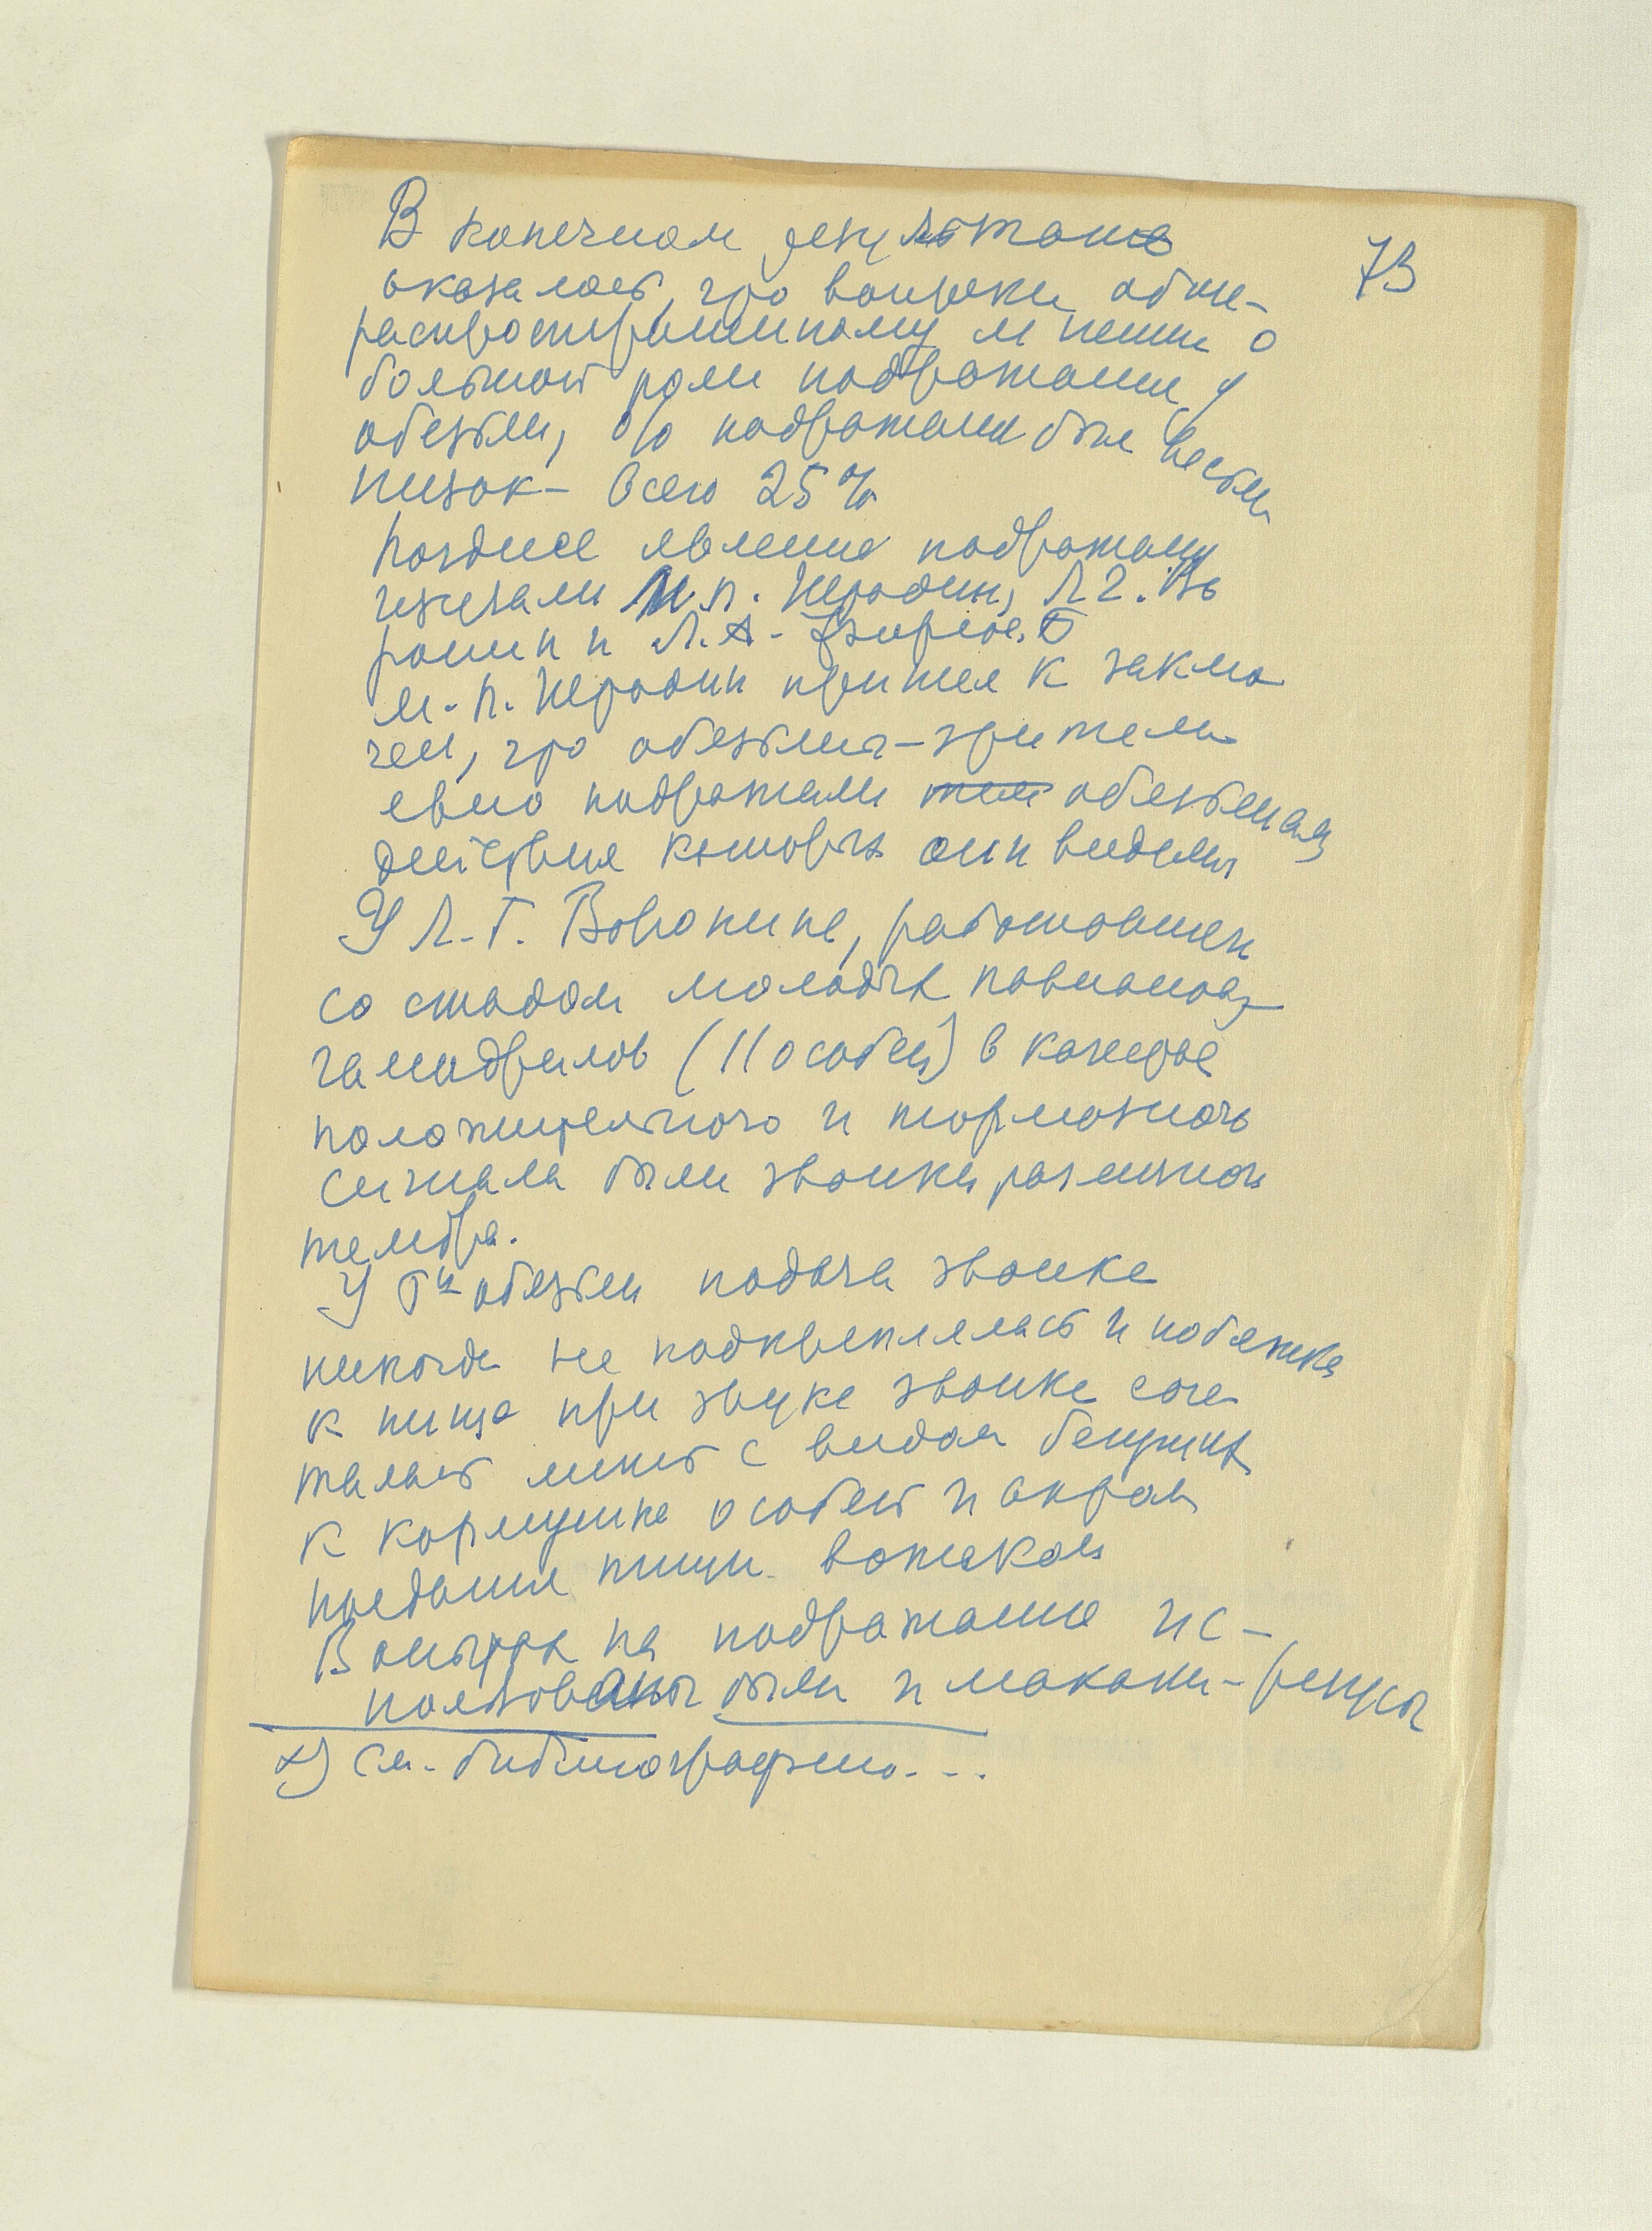 73
В конечном результате
оказалось, что вопреки обще-
распространенному мнению о
большой роли подражания у
обезьян, % подражания был весьма
низок – всего 25%
Позднее явление подражания
изучали М.П. Штодин, Л.Г. Во
ронин и Л.А. Фирсов.
М.П. Штодин пришел к заклю
чен, что обезьяны-зрители
явно подражали тем обезьянам
действия которых они видели
У Л.Г. Воронина, работавшего
со стадом молодых павианов
гамадрилов (11 особей) в качестве
положительного и тормозного
сигнала были звонки различного
тембра.
У 5и обезьян подача звонка
никогда не подкреплялась и побежка
к пище при звуке звонка соче
талась лишь с видом бегущих
к кормушке особей и актом
поедания пищи вожаком
В опытах на подражание ис-
пользованы были и макаки-резусы
х) См. библиографию...